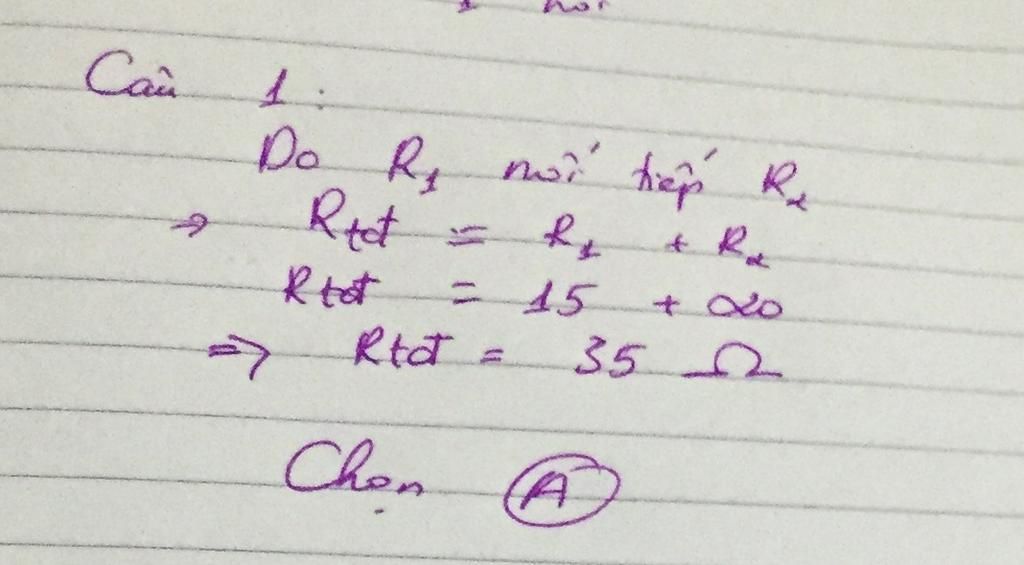 Câu 1 :
Do R₁ nối tiếp R₂
→ Rtđ = R₁ + R₂
Rtđ = 15 + 20
=> Rtđ = 35 Ω
Chọn A